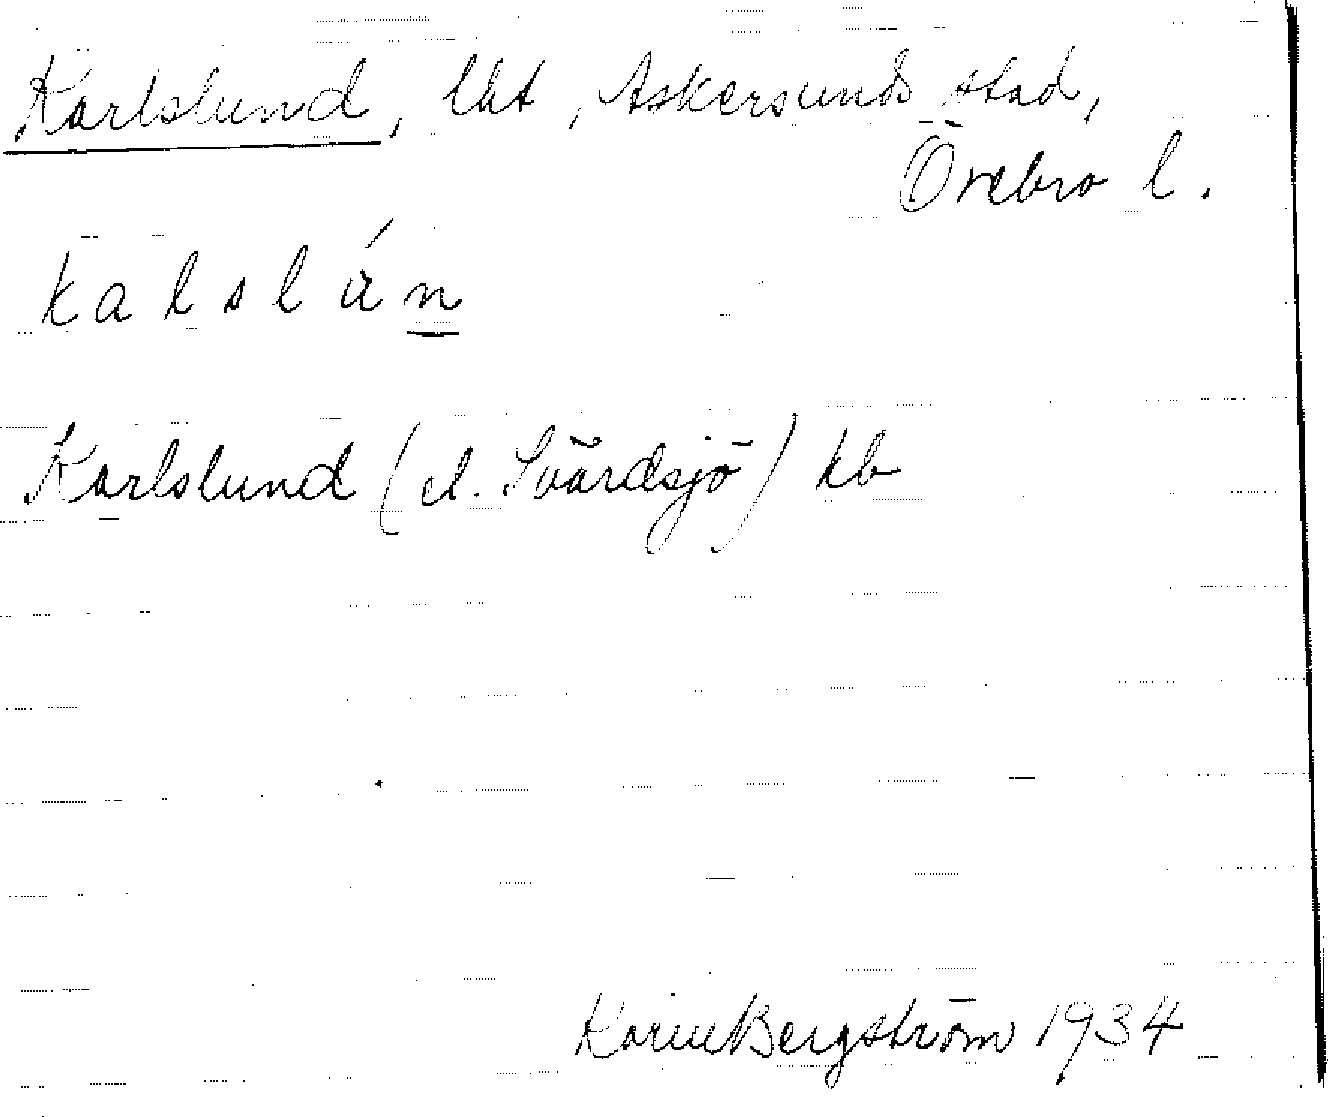 Karlslund, lht, Askersunds stad,
Örebro l.
kalslún
Karlslund (el. Svärdsjö) kb
Karin Bergström 1934